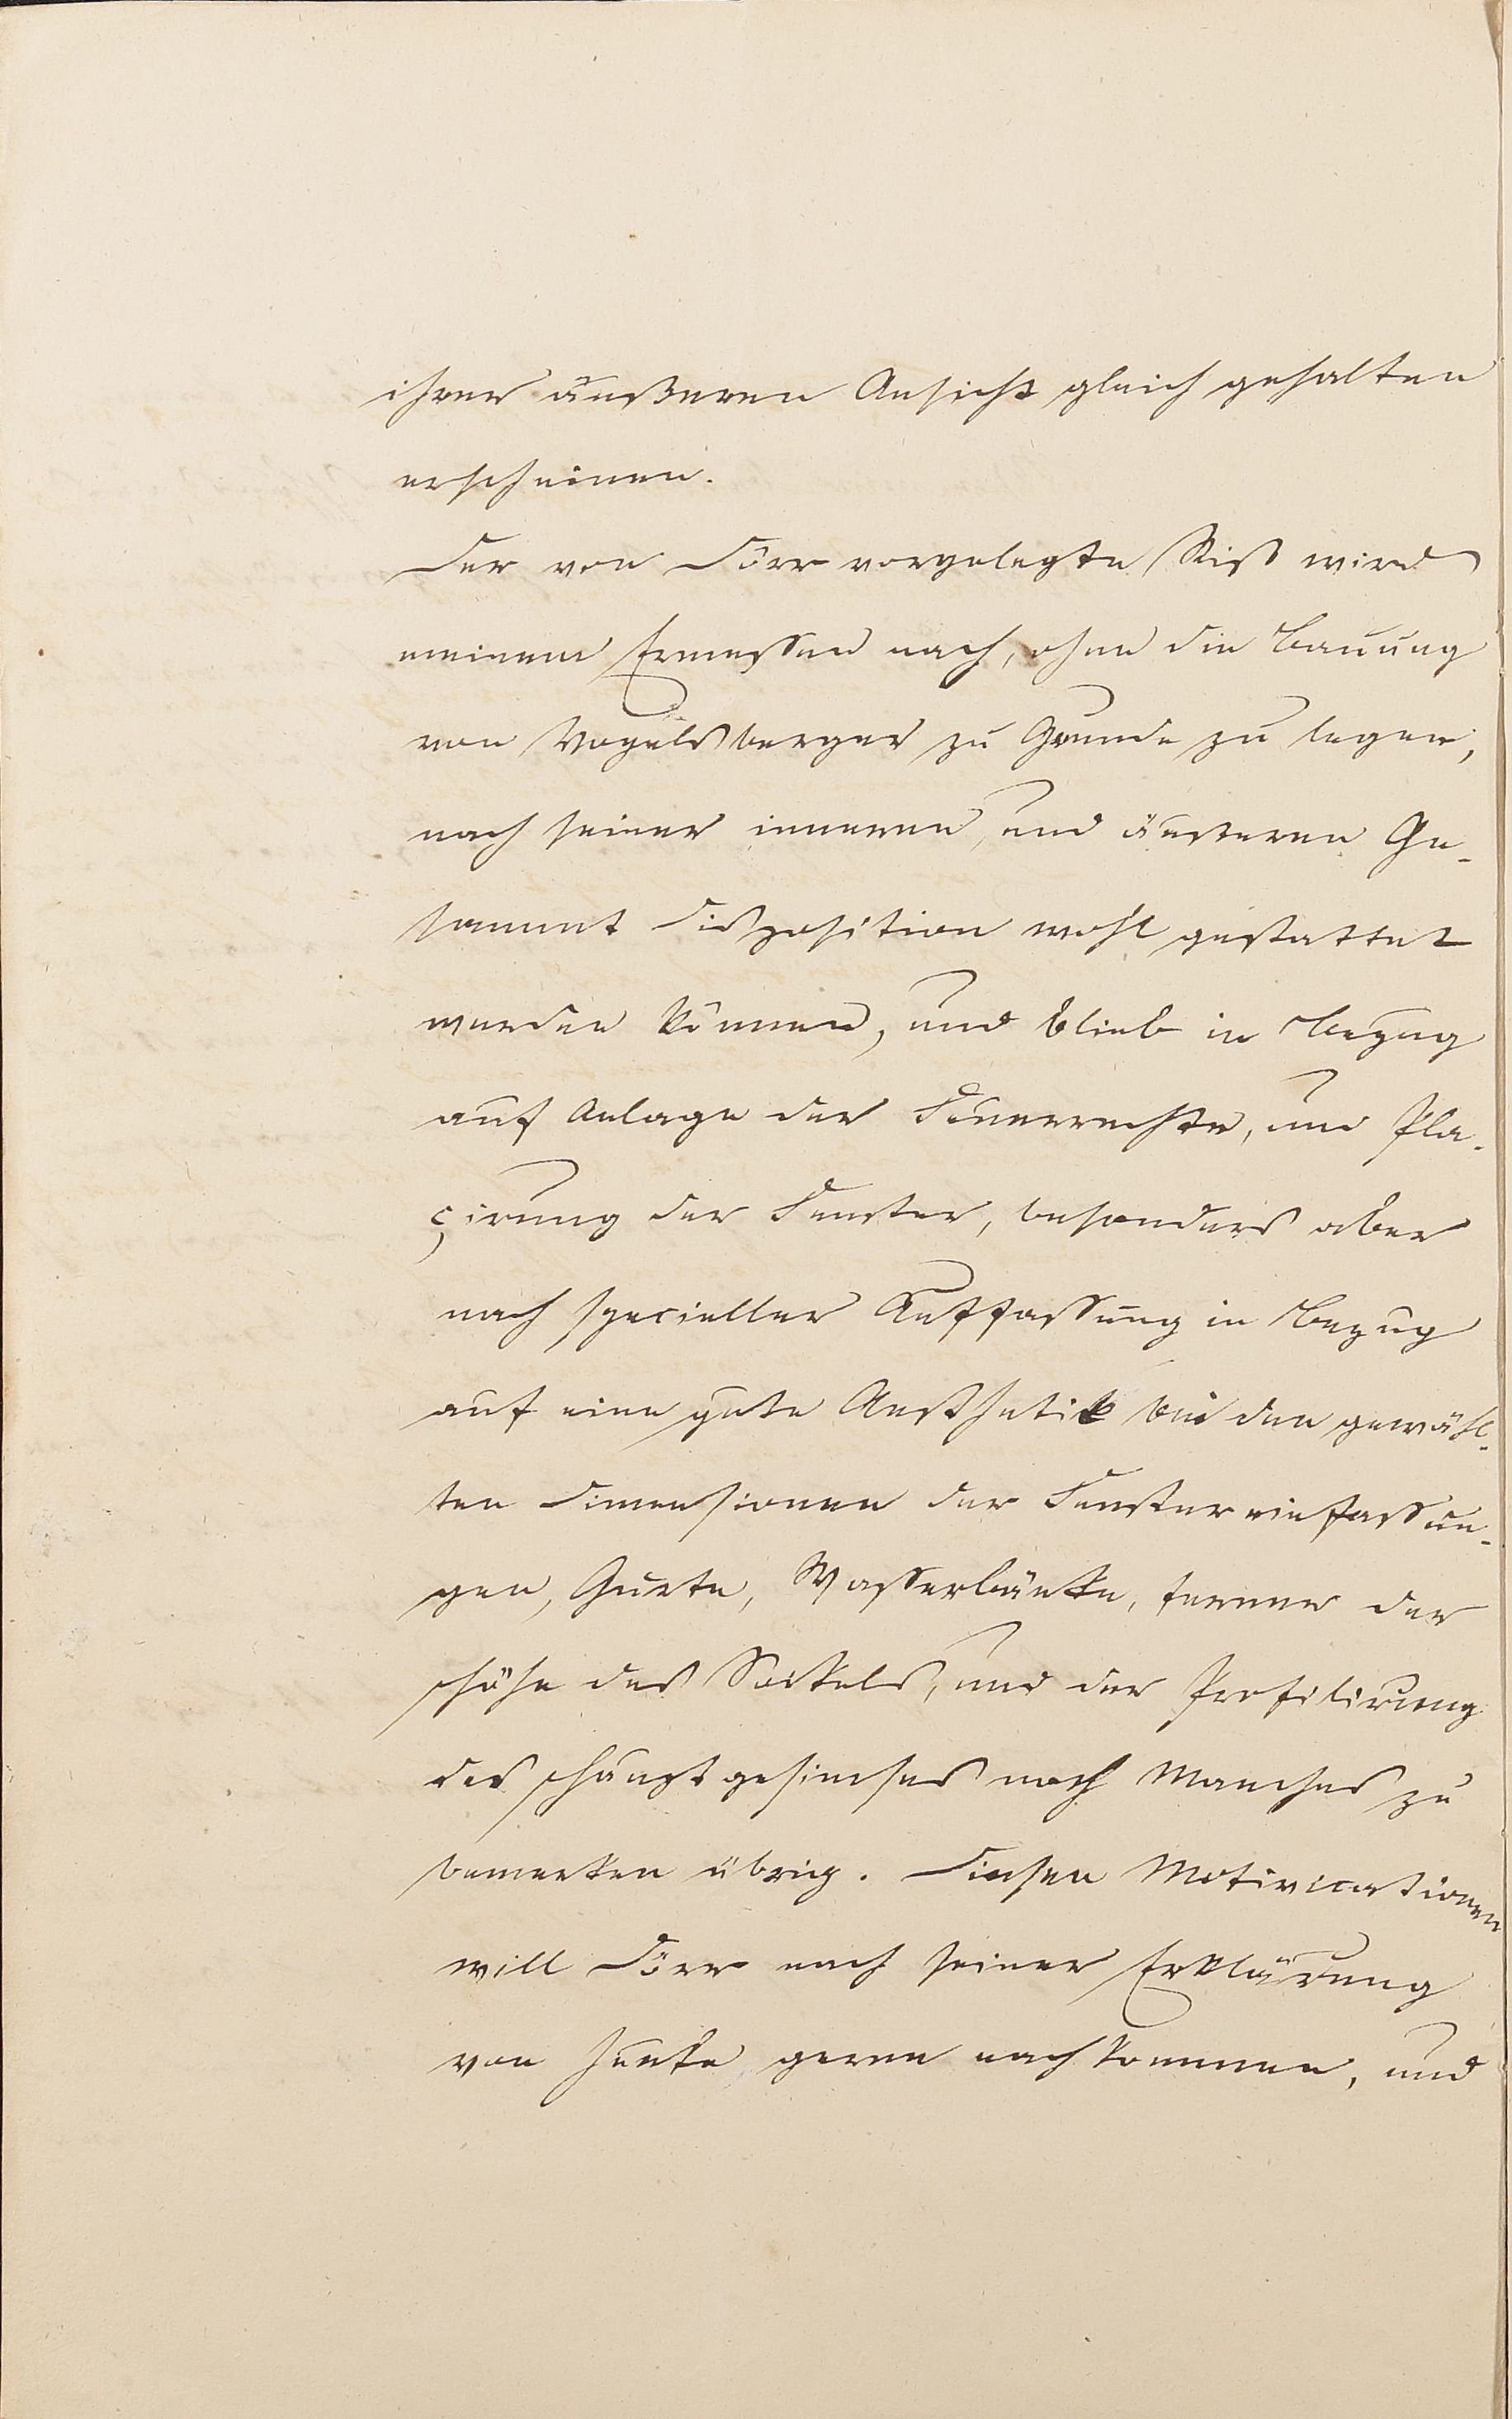 ihrer äußeren Ansicht gleich gehalten
erscheinen.
Der von Dörr vorgelegte Riß wird
meinem Ermessen nach, ohne die Bauung
von Vogelsberger zu Grunde zu legen,
nach seiner inneren, und äußeren Ge-
sammt Disposition wohl gestattet
werden können, und blieb in Bezug
auf Anlage der Feuerrechte, und Pla-
çirung der Fenster, besonders aber
nach specieller Auffassung in Bezug
auf eine gute Aesthetik bei den gewähl-
ten Dimensionen der Fenstereinfassun-
gen, Gurte, Wasserbänke, ferner der
Höhe des Sockels, und der Profilirung
des Hauptgesimses noch Manches zu
bemerken übrig. Diesen Motivicationen
will Dörr nach seiner Erklärung
von heute gerne nachkommen, und